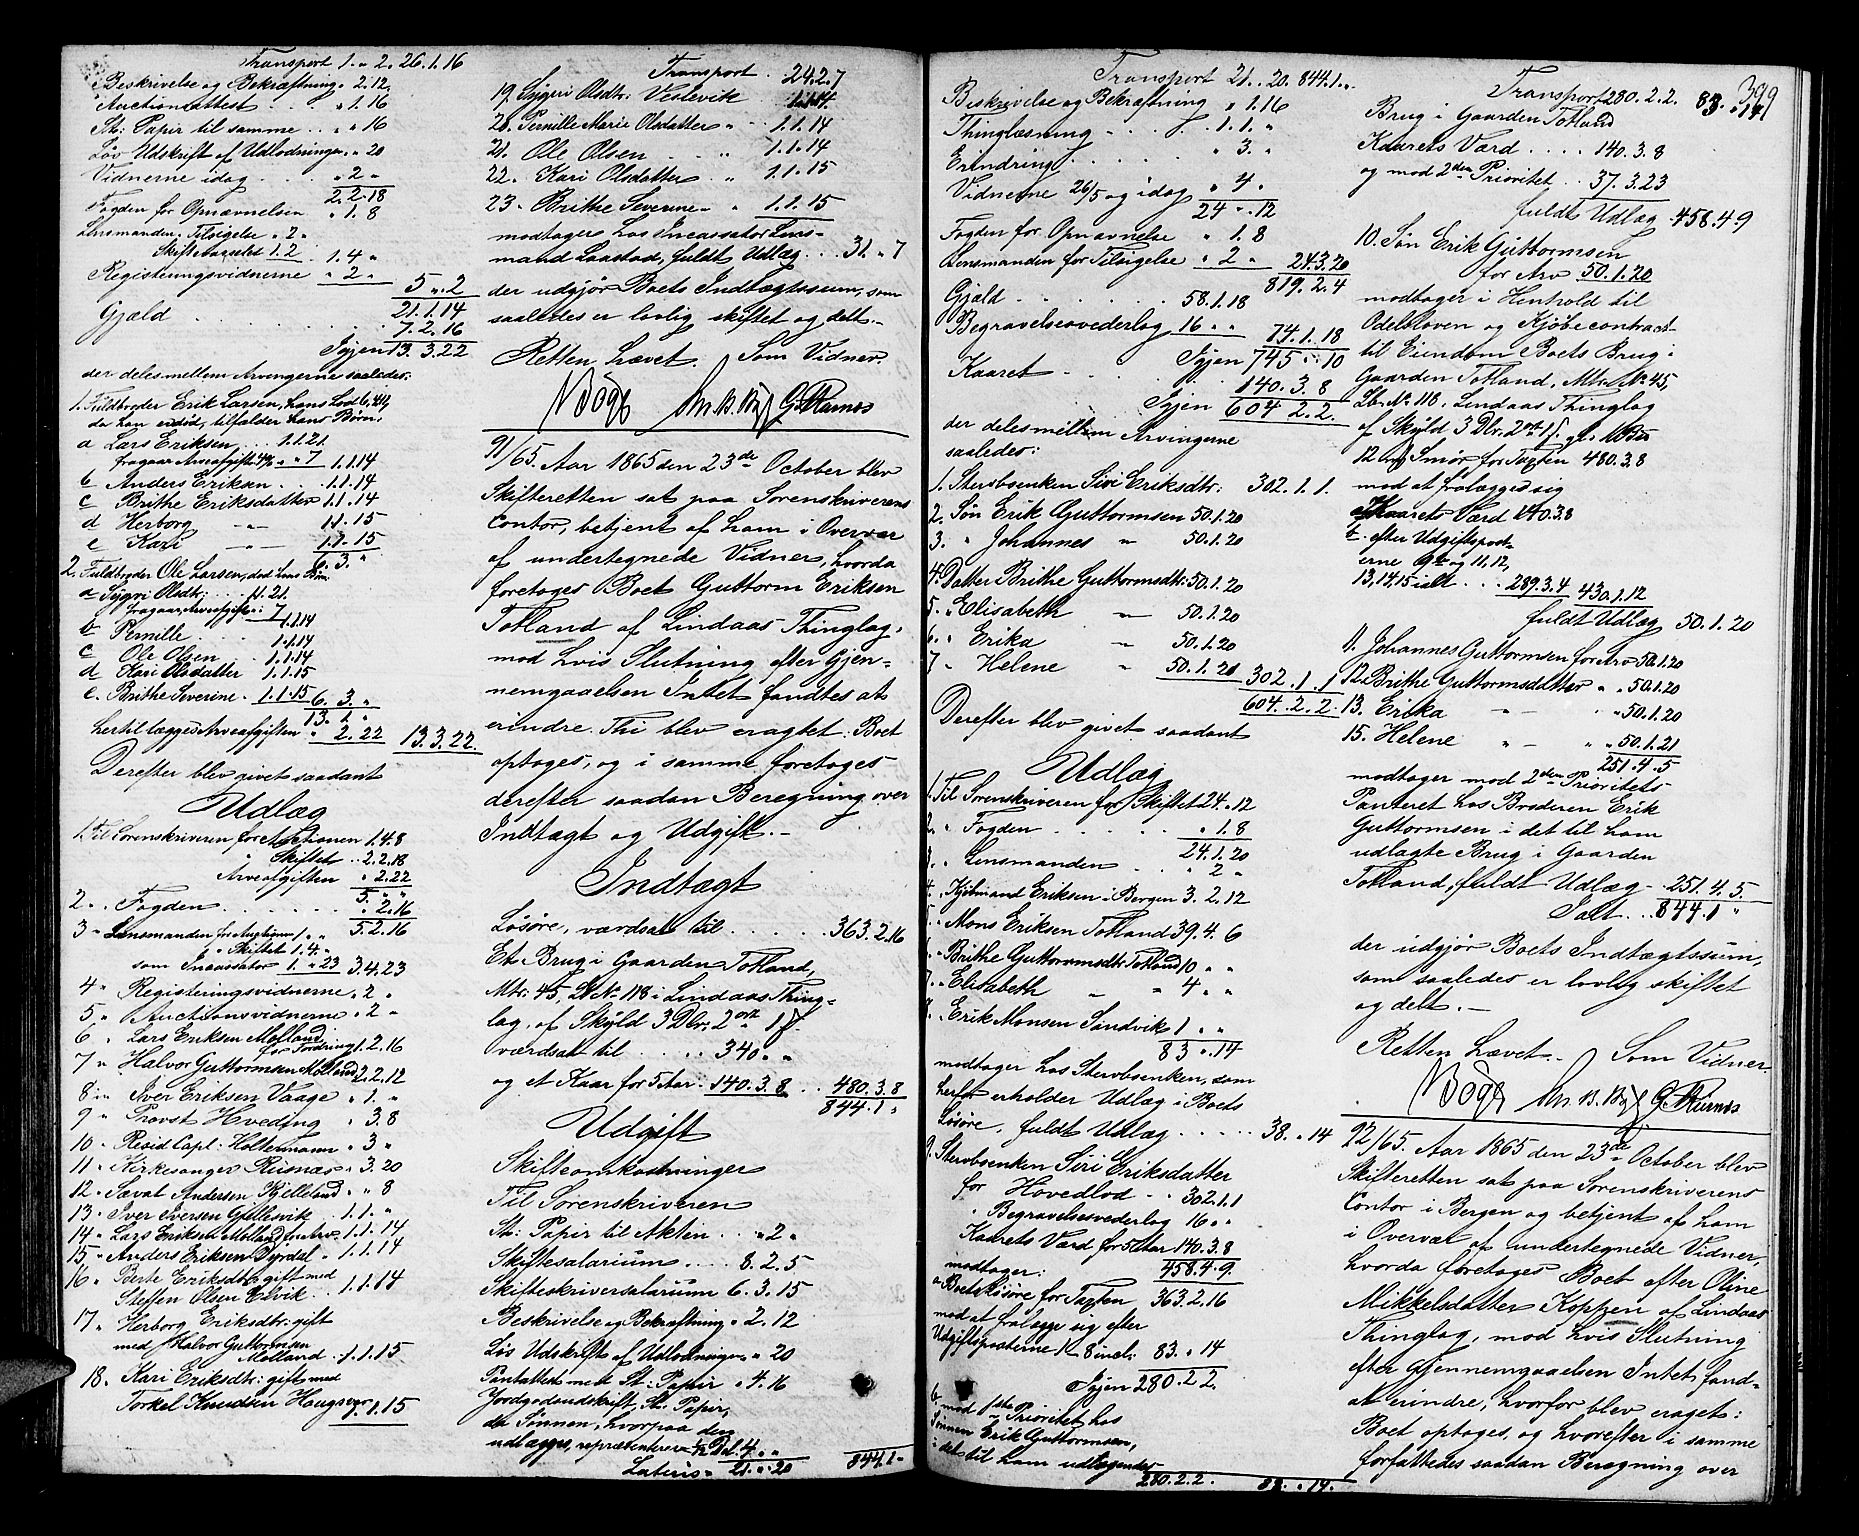 Transport 1. " 2. 26.1.16
Beskrivelse og Bekræftning " 2.12.
Auctionsattest . . . " 1.16
St: Papir til samme . . " " 16
Løv Udskrift af Udlodningen " " 20
Vidnerne idag . . . " 2 "
2.2.18
Fogden for Opnævnelsen " 1.8
Lensmanden, Tilsigelse " 2 "
Skiftevarslet 1.2
1.4 "
Registreringsvidnerne " 2 "
5 " 2
21.1.14
Gjæld . . . 7.2.16
Igjen 13.3.22
der deles mellem Arvingerne saaledes:
1. Fuldbroder Erik Larsen, hans Lod
da han er død, tilfalder hans Børn.
a Lars Eriksen . . . 1.1.21.
fragaar Arveafgift 4% " " 7 1.1.14
b Anders Eriksen . . . 1.1.14
c Brithe Eriksdatter 1.1.14
d Herborg " 1.1.15
e Kari " 1.1.15
6.3. "
2. Fuldbroder Ole Larsen, død hans Børn
a Sygri Olsdtr: . . . 1.1.21.
fragaar Arveafgift: 7 1.1.14
b Pernille . . . 1.1.14
c Ole Olsen . . . 1.1.14
d Kari Olsdatter 1.1.15
e. Brithe Severine . 1.1.15 6.3. "
13.1 "
hertil lægges Arveafgiften " 2.22 13.3.22
Derefter blev givet saadant
Udlæg
1. Til Sorenskriveren for Auctionen 1.4.8
" Skiftet . . 2.2.18
Arveafgiften " 2.22
5. " "
2 " . Fogden . . . " 2.16
5.2.16
3 " Lensmanden for Auctionen 1 " "
" Skiftet 1.4. "
som Incassator 1. " 23 3.4.23
4 " Registreringsvidnerne " 2 "
5 " Auctionsvidnerne " 2 "
6 " Lars Eriksen Molland
for Fordring 1.2.16
7 " Halvor Guttormsen Molland 2.2.12
8 " Iver Eriksen Vaage " 1. "
9 " Provst Hveding " 3.8
10 " Resid Capl: Holtermann " 3 "
11 " Kirkesanger Risnæs " 3.20
12 " Sævat Andersen Kjelleland " " 8
13 " Iver Iversen Gjellesvik " 1.1. "
14 " Lars Eriksen Molland for Arv 1.1.14
15 " Anders Eriksen Dyrdal " 1.1.14
16 " Berte Eriksdtr gift med
Steffen Olsen Elvik . 1.1.14
17 " Herborg Eriksdtr: gift
med Halvor Guttormsen
Molland . 1.1.15
18 . Kari Eriksdtr: gift med
Torkel Knudsen Haugsvær 1.1.15
Transport . 24.2.7
19. Sygri Olsdtr: Veslevik 1.1.14
20. Pernille Marie Olsdatter " 1.1.14
21. Ole Olsen " 1.1.14
22. Kari Olsdatter " 1.1.15
23 " Brithe Severine " " 1.1.15
modtages hos Incassator Lens-
mand Laastad, fuldt Udlæg . . 31. " 7
der udgjør Boets Indtægtssum, som
saaledes er lovlig skiftet og delt.-
Retten hævet. Som Vidner
Bøgh G. Risnes
91/65. Aar 1865 den 23de October blev
Skifteretten sat paa Sorenskriverens
Contor, betjent af ham i Overvær
af undertegnede Vidner, hvorda
foretoges Boet Guttorm Eriksen
Totland af Lindaas Thinglag,
mod hvis Slutning efter Gjen-
nemgaaelsen Intet fandtes at
erindre. Thi blev eragtet: Boet
optages, og i samme foretoges
derefter saadan Beregning over
Indtægt og Udgift.-
Indtægt
Løsøre, værdsat til . . . 363.2.16
Et Brug i Gaarden Totland,
Mtr: 45, LNo 118 i Lindaas Thing-
lag, af Skyld 3 Dlr. 2 ort 1 ß.
værdsat til . . . 340 " "
og et Kaar for 5 Aar . 140.3.8 . . 480.3.8
844.1. "
Udgift
Skifteomkostninger
Til Sorenskriveren
St: Papir til Akten . . " 2 "
Skiftesalarium . . . . 8.2.5
Skifteskriversalarium 6.3.15
Beskrivelse og Bekræftning " 2.12
Løs Udskrift af Udlodningen " " 20
Pantattest med St: Papir " 4.16
Jordgodsudskrift, St: Papir,
da Sønnen, hvorpaa den
udlægges, repræsenterer ½ Del. 4 " "
Lateris " 21. " 20 844.1-
Transport 21. " 20. 844.1. "
Beskrivelse og Bekræftning " 1.16
Thinglæsning . . . . 1.1. "
Erindring . . . . . " 3. "
Vidnerne 26/5 og idag " 4 "
24 " 12
Fogden for Opnævnelse " 1.8
Lensmanden for Tilsigelse " 2 " 24.3.20
819.2.4
Gjæld . . . . . 58.1.18
Begravelsesvederlag 16 " " 74.1.18
Igjen 745 " 10
Kaaret . . . 140.3.8
Igjen 604.2.2.
der deles mellem Arvingerne
saaledes:
1. Stervboenken Siri Eriksdtr: 302.1.1.
2. Søn Erik Guttormsen 50.1.20
3. " Johannes " 50.1.20
4. Datter Brithe Guttormsdtr: 50.1.20
5. " Elisabeth " 50.1.20
6. " Erika " 50.1.20
7 " Helene " 50.1.20 302.1.1
604.2.2
Derefter blev givet saadant
Udlæg
1. Til Sorenskriveren for Skiftet 24. " 12
2. " Fogden . . . . " 1.8
24.1.20
3. " Lensmanden . . . " 2 "
4. " Kjøbmand Eriksen i Bergen 3.2.12
5. " Mons Eriksen Totland 39.4.6
6. " Brithe Guttormsdtr Totland 10 " "
7. " Elisabeth " " 4 " "
8. " Erik Monsen Sandvik 1 " "
83 " 14
modtager hos Stervboenken, som
herfor erholder Udlæg i Boets
Løsøre, fuldt Udlæg . . . . . 83. " 14
9. Stervboenken Siri Eriksdatter
for Hovedlod . . 302.1.1
" Begravelsesvederlag 16 " "
Kaarets Værd for 5 Aar 140.3.8
modtager: 458.4.9.
a Boets Løsøre for Taxten 363.2.16
mod at fralægge sig efter
Udgiftsposterne 1-8 incl: 83. " 14
Igjen 280.2.2.
b mod 1ste Prioritet hos
Sønnen Erik Guttormsen,
i det til ham udlægendes
280.2.2. 83. " 14.
Transport 280.2.2. 83. " 14
399
Brug i Gaarden Totland
Kaarets Værd . . . . 140.3.8
og mod 2den Prioritet . . 37.3.23
fuldt Udlæg 458.4.9
10. Søn Erik Guttormsen
for Arv 50.1.20
modtager i Henhold til
Odelsloven og Kjøbecontract
til Eiendom Boets Brug i
Gaarden Totland, Mtr. No 45,
Lb. No 118, Lindaas Thinglag
af Skyld 3 Dlr. 2 ort 1 ß. gl. 1 Bis
12 Mrk Smør for Taxten 480.3.8
mod at fralægge sig
a Kaarets Værd 140.3.8
b. efter Udgiftspost-
erne 9de og 11, 12,
13, 14, 15 ialt . . . 289.3.4 430.1.12
fuldt Udlæg 50.1.20
11. Johannes Guttormsen for Arv 50.1.20
12. Brithe Guttormsdatter " " 50.1.20
13. Erika " " " 50.1.20
15. Helene " " " 50.1.21
251.4.5
modtager mod 2den Prioritets
Panteret hos Broderen Erik
Guttormsen i det til ham
udlagte Brug i Gaarden
Totland, fuldt Udlæg . 251.4.5.
Ialt . . 844.1 "
der udgjør Boets Indtægtssum,
som saaledes er lovlig skiftet
og delt.-
Retten hævet. Som Vidner.
Bøgh G. Risnes
92/65. Aar 1865 den 23de October blev
Skifteretten sat paa Sorenskriverens
Contor i Bergen og betjent af ham
i Overvær af undertegnede Vidner,
hvorda foretoges Boet efter Oline
Mikkelsdatter Koppen af Lindaas
Thinglag, mod hvis Slutning
efter Gjennemgaaelsen Intet fand-
at erindre, hvorfor blev eragtet:
Boet optages, og hvorefter i samme
forfattedes saadan Beregning over